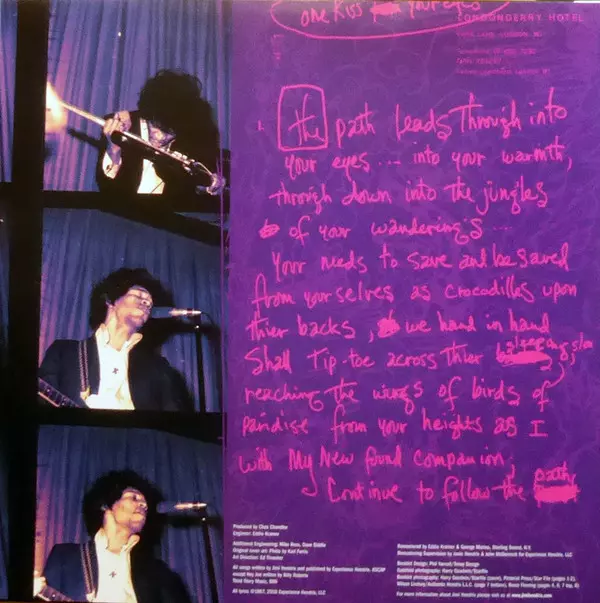 one Kiss your eyes
LONDONDERRY HOTEL
PARK LANE, LONDON, W1
1. the path leads Through into
your eyes ... into your warmth,
through down into the jungles
of your wandering's ...
Your needs to save and be saved
from your selves as crocodilles upon
thier backs, we hand in hand
Shall Tip-toe across Thier
sleeping
reaching The wings of birds of
from your heights as I
with My New found Companion,
Continue to follow the path
Produced by Chas Chandler
Engineer: Eddie Kramer
Additional Engineering: Mike Ross, Dave Siddle
Original cover art: Photo by Karl Ferris
Art Direction: Ed Thrasher
All songs written by Jimi Hendrix and published by Experience Hendrix, ASCAP
except Hey Joe written by Billy Roberts
Third Stone Music, BMI
All lyrics ©1997, Experience Hendrix, LLC
Remastered by Eddie Kramer & George Marino, Sterling Sound, N.Y.
Remastering Supervision by Janie Hendrix & John McDermott for Experience Hendrix, LLC
For more information about Jimi Hendrix please visit us at www.jimihendrix.com